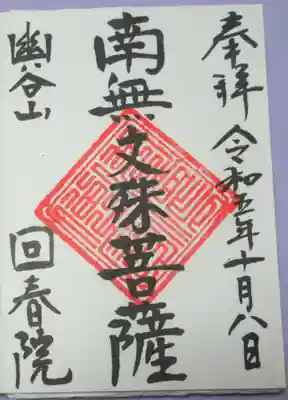 奉拝 令和五年十月八日
南無文殊菩薩
幽谷山 回春院